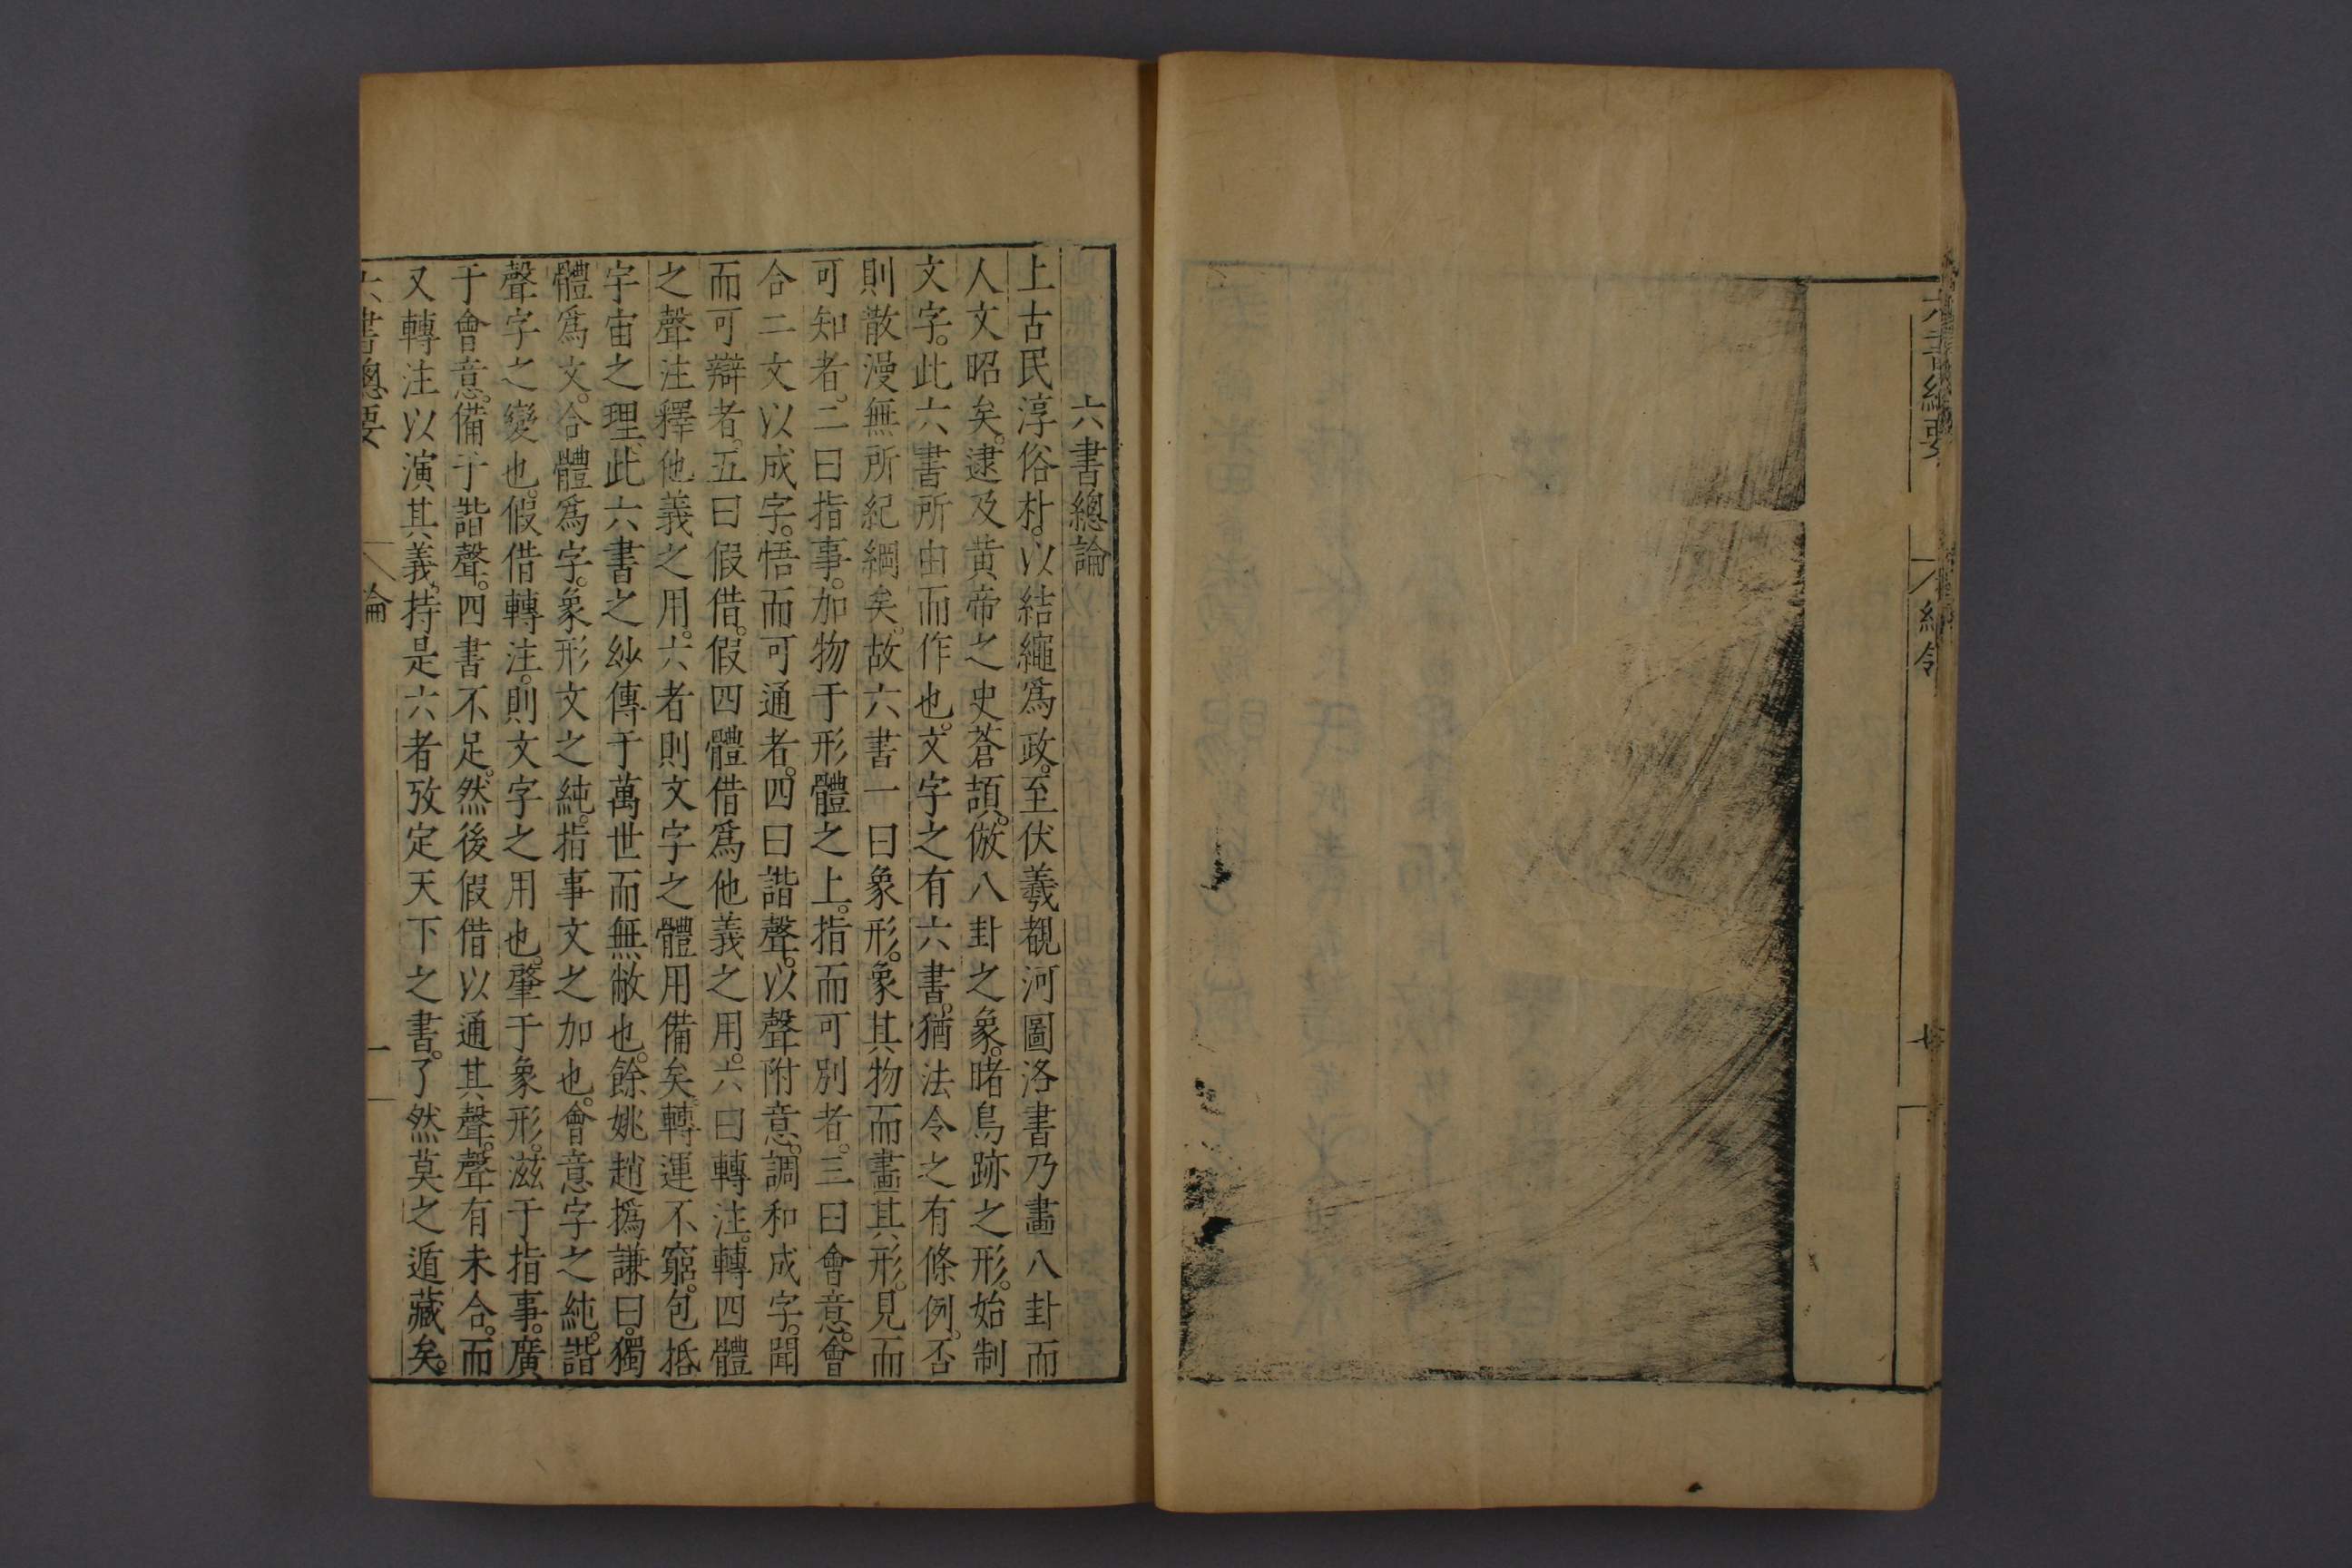 六書總要
七
六書總論
上古民淳俗朴。以結繩爲政。至伏羲觀河圖洛書乃畫八卦而
人文昭矣。逮及黄帝之史蒼頡。倣八卦之象。睹鳥跡之形。始制
文字。此六書所由而作也。文字之有六書。猶法令之有條例。否
則散漫無所紀綱矣。故六書一曰象形。象其物而畫其形。見而
可知者。二曰指事。加物于形體之上。指而可別者。三曰會意。會
合二文以成字。悟而可通者。四曰諧聲。以聲附意。調和成字。聞
而可辯者。五曰假借。假四體借爲他義之用。六曰轉注。轉四體
之聲注釋他義之用。六者則文字之體用備矣。轉運不窮。包括
宇宙之理。此六書之玅傳于萬世而無敝也。餘姚趙撝謙曰。獨
體爲文。合體爲字。象形文之純。指事文之加也。會意字之純。諧
聲字之變也。假借轉注。則文字之用也。肇于象形。滋于指事。廣
于會意。備于諧聲。四書不足。然後假借以通其聲。聲有未合。而
又轉注以演其義。持是六者攷定天下之書。了然莫之遁藏矣。
六書總要 論 一